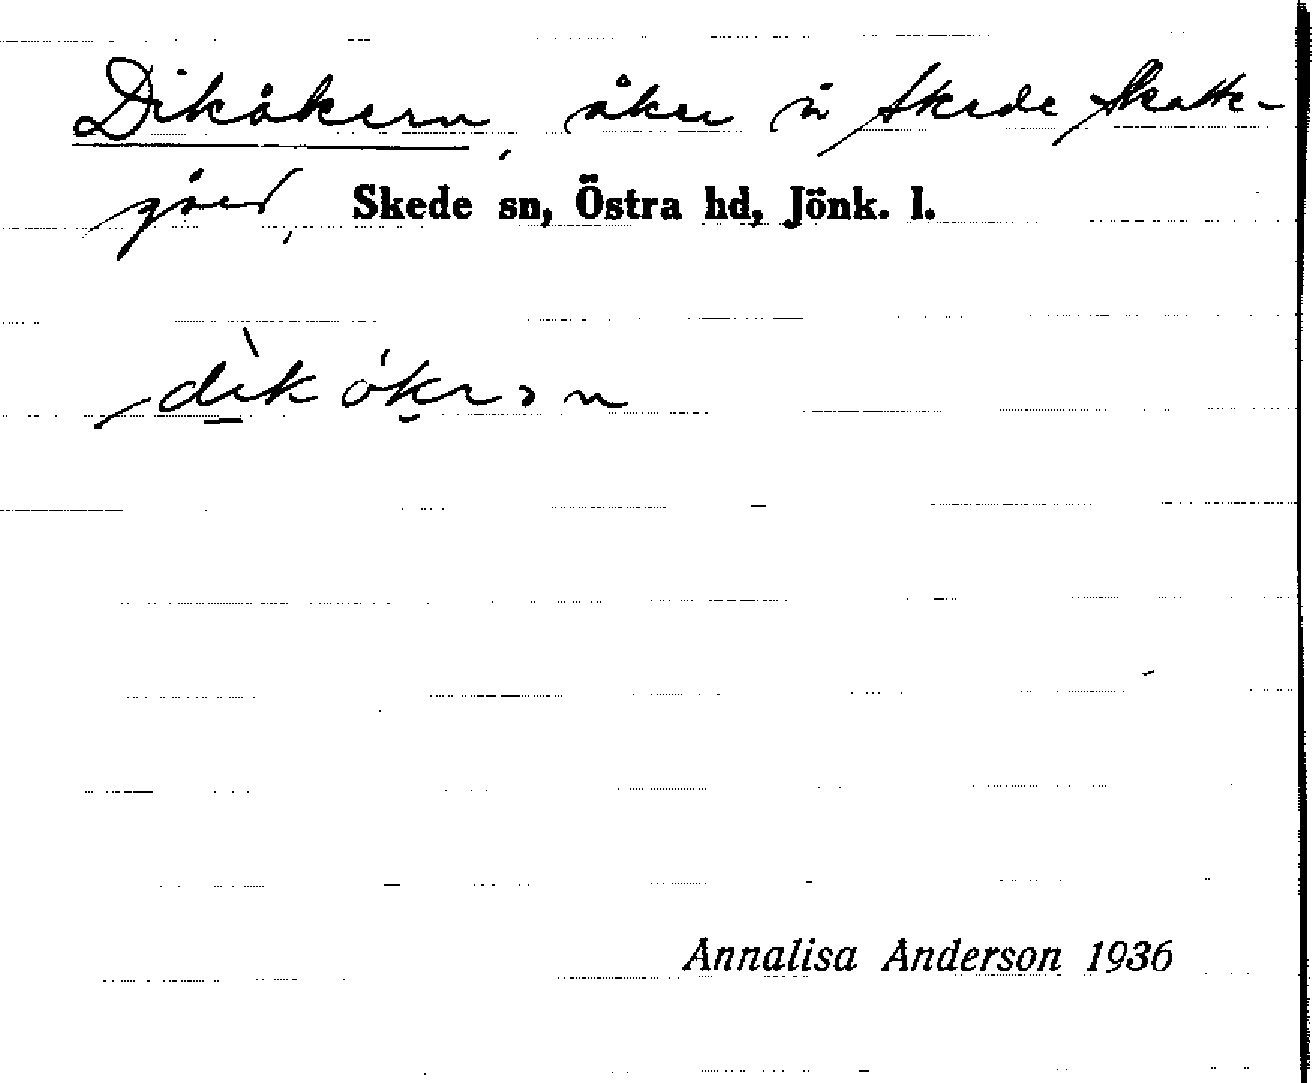 Dikåkern, åker i Skede Skatte-
gård, Skede sn, Östra hd, Jönk. l.
Annalisa Anderson 1936